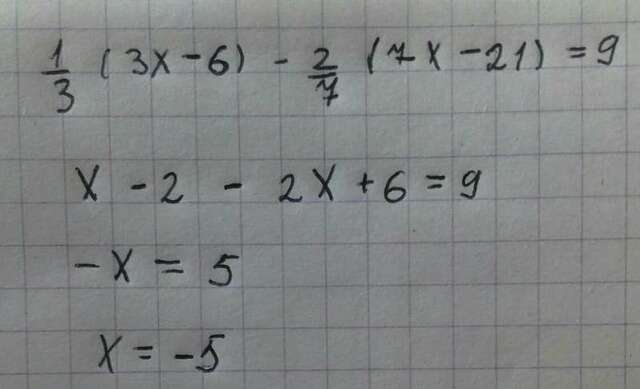 1/3 (3x-6) - 2/7 (7x-21) = 9
x - 2 - 2x + 6 = 9
-x = 5
x = -5